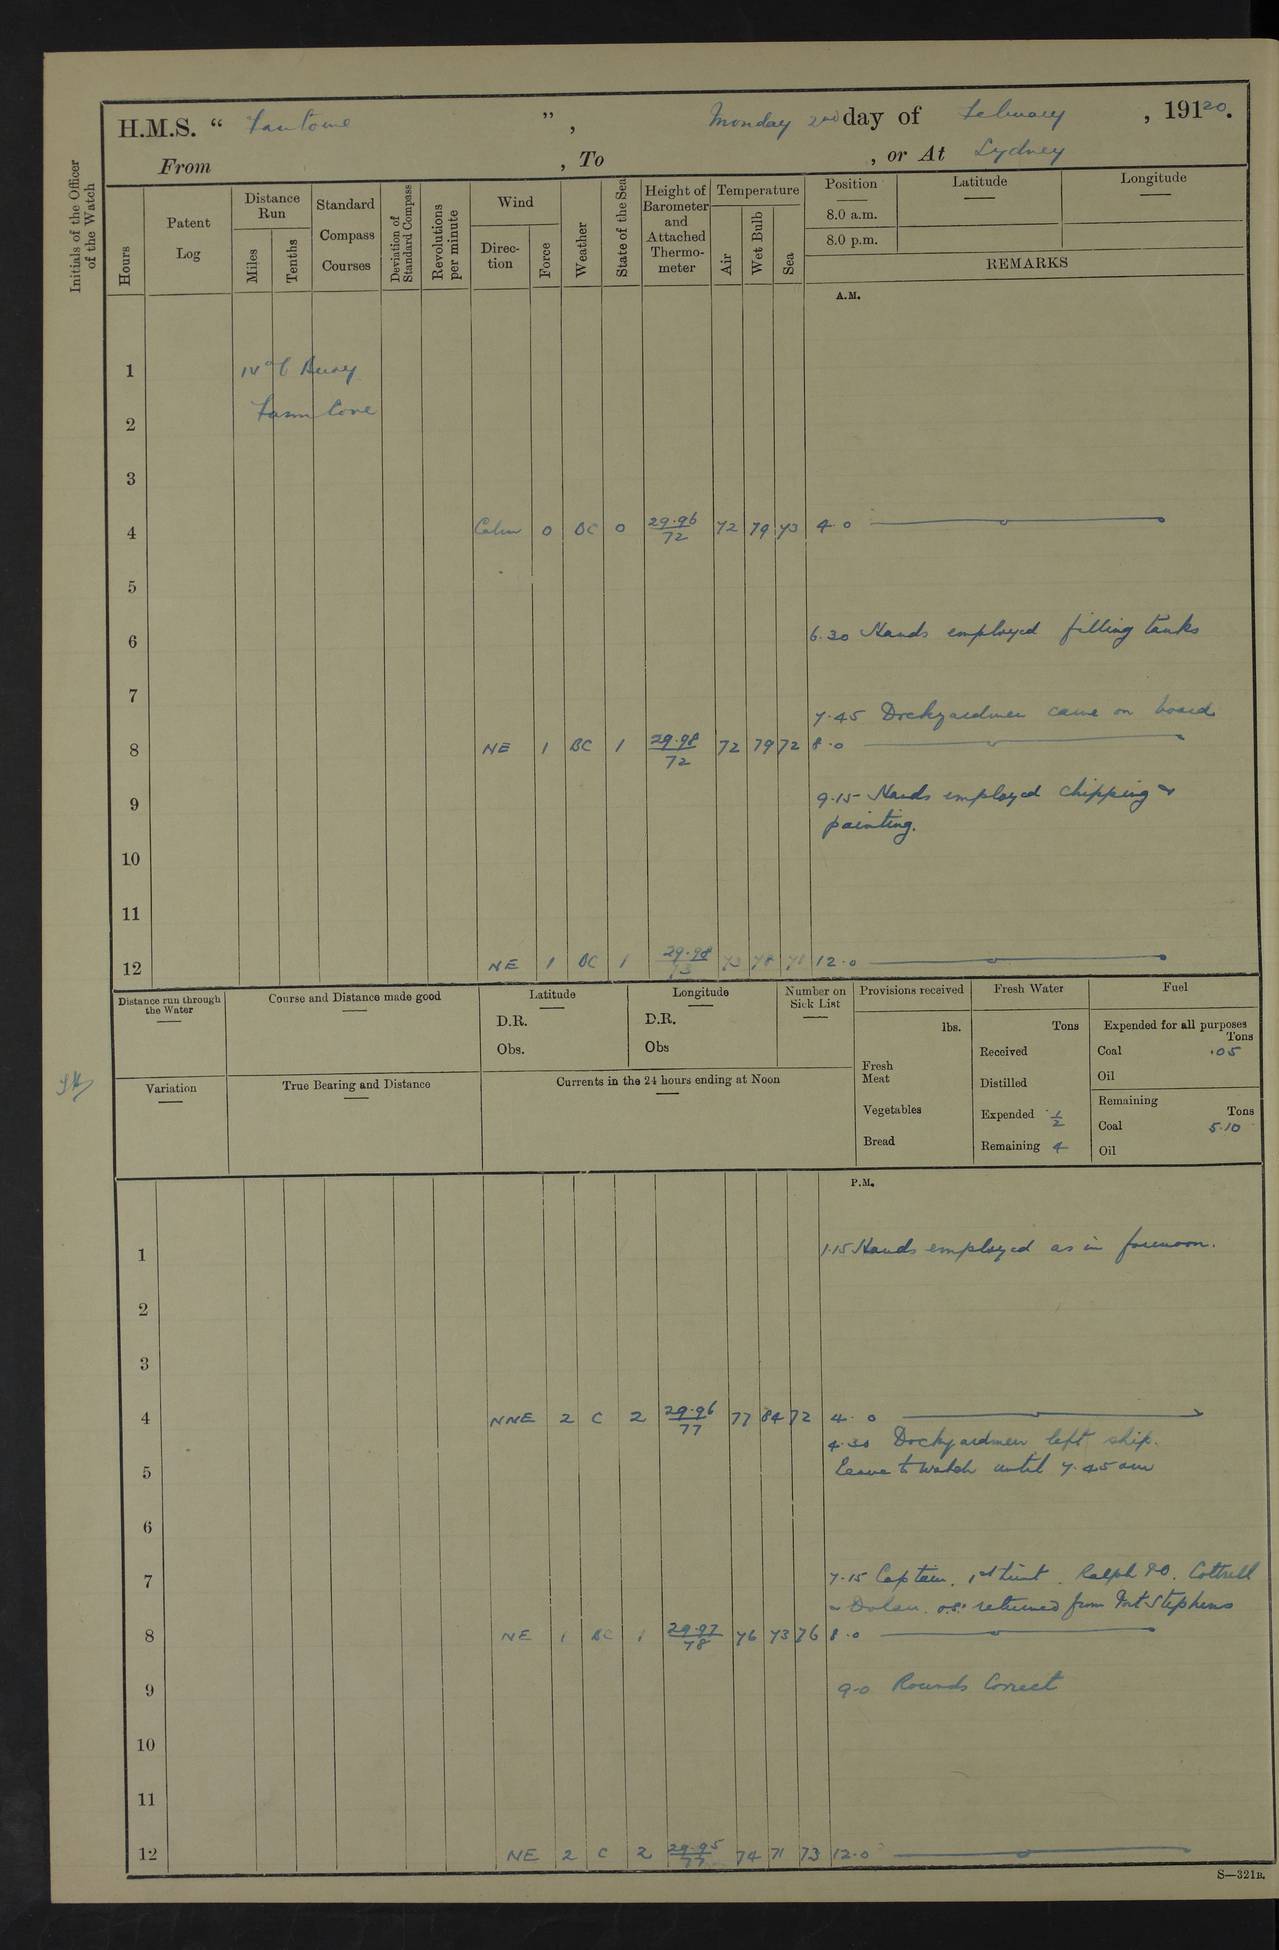 H.M.S. “ Fantome ”, Monday 2nd day of February, 19120.
From , To , or At Sydney
Initials of the Officer of the Watch
Hours
Patent Log
Distance Run
Miles
Tenths
Standard Compass Courses
Deviation of Standard Compass
Revolutions per minute
Wind
Direction
Force
Weather
State of the Sea
Height of Barometer and Attached Thermometer
Temperature
Air
Wet Bulb
Sea
Position
Latitude
Longitude
8.0 a.m.
8.0 p.m.
REMARKS
A.M.
1 Buoy
2 Farm Cove
3
4 Calm 0 BC 0 29.96/72 72 79 73 4.0
5
6 6.30 Hands employed filling tanks
7
7.45 Dockyardmen came on board
8 NE 1 BC 1 29.98/72 72 79 72 8.0
9 9.15 Hands employed chipping &
painting.
10
11
12 NE 1 BC 1 29.98/73 73 78 12.0
Distance run through the Water
Course and Distance made good
Latitude
D.R.
Obs.
Longitude
D.R.
Obs
Number on Sick List
Provisions received
lbs.
Fresh Meat
Vegetables
Bread
Fresh Water
Tons
Received
Distilled
Expended 1/2
Remaining 4
Fuel
Expended for all purposes
Tons
Coal .05
Oil
Remaining
Tons
Coal 5.10
Oil
Variation
True Bearing and Distance
Currents in the 24 hours ending at Noon
P.M.
1 1.15 Hands employed as in forenoon.
2
3
4 NNE 2 C 2 29.96/77 77 84 72 4.0
4.30 Dockyardmen left ship.
5 Leave to watch until 7.45 am
6
7 7.15 Captain, 1st Lieut. Ralph P.O. Cottrell
& Dolan. O.S. returned from Port Stephens
8 NE 1 BC 1 29.97/78 76 73 76 8.0
9 9.0 Rounds Correct
10
11
12 NE 2 C 2 29.95/77 74 71 73 12.0
S—321B.